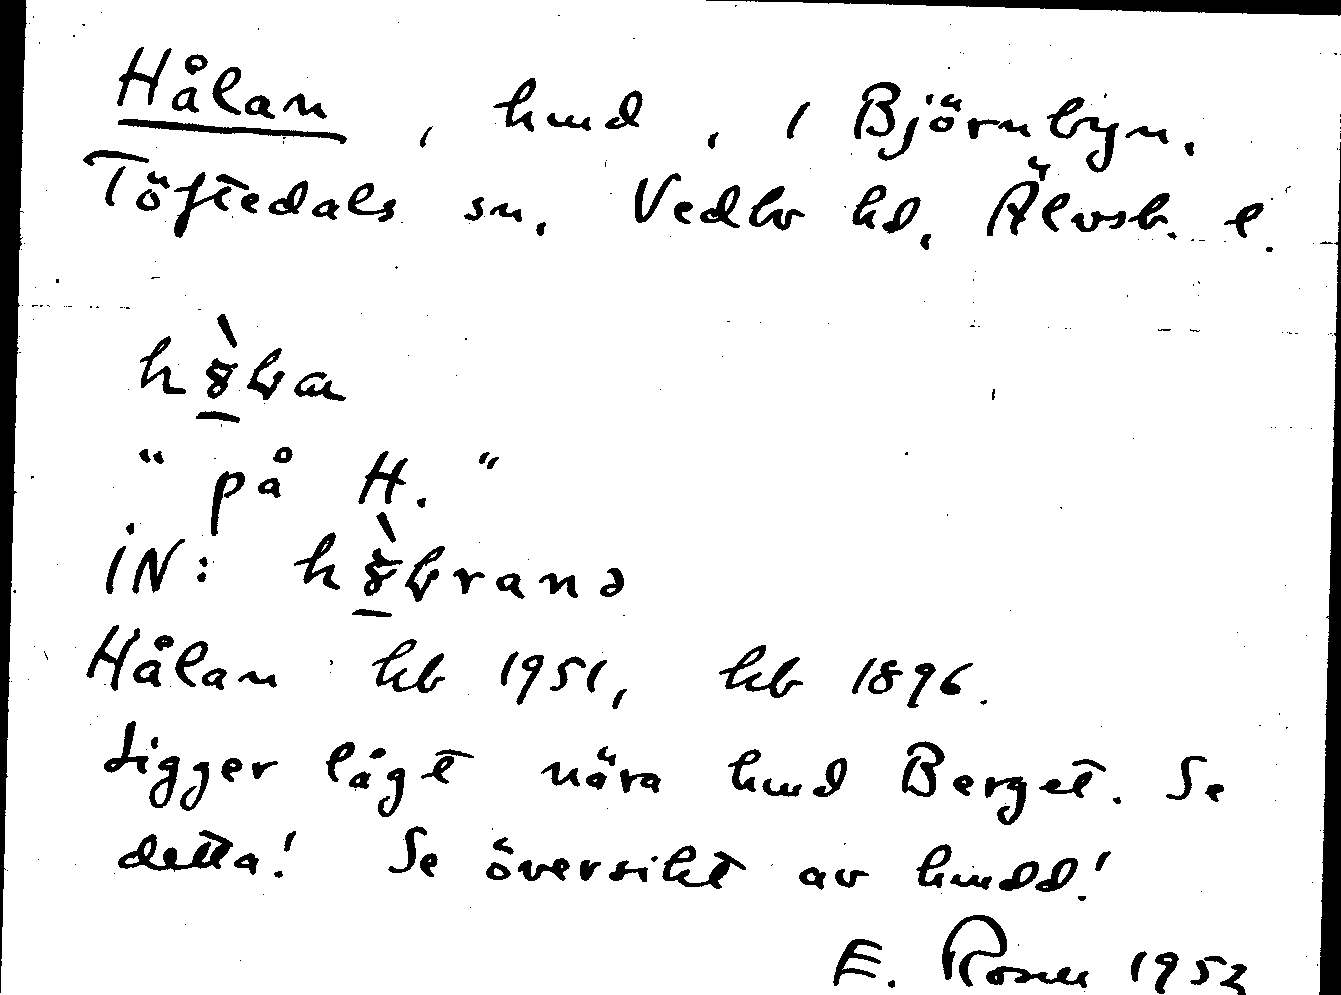 Hålan, hmd, i Björnbyn.
Töftedals sn, Vedbo hd, Älvsb. l.
"på H."
IN:
Hålan kb 1951, kb 1896.
Ligger lågt nära hmd Berget. Se
detta! Se översikt av hmdd!
E. Rosell 1952